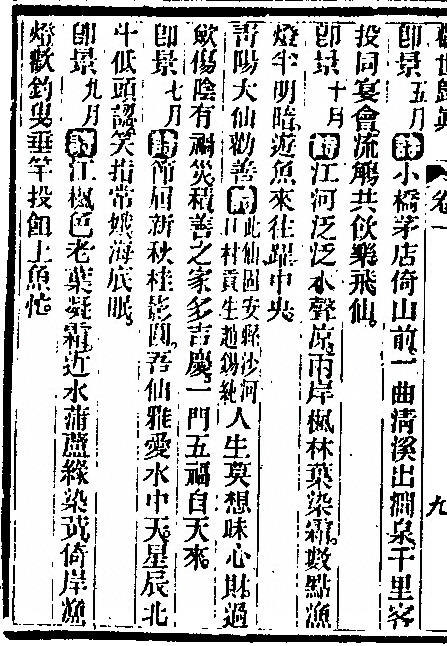 卽景 五月 詩 小橋茅店倚山前一曲淸溪出澗泉千里客
投同宴會流觴共飮樂飛仙
卽景 十月 詩 江河泛泛水聲凉兩岸楓林葉染霜數點漁
燈半明暗遊魚來往躍中央
靑陽大仙勸善 詩 此仙固安縣沙河村貢生趙錫純 人生莫想昧心財過
歉傷陰有禍災積善之家多吉慶一門五福自天來
卽景 七月 詩 節屆新秋桂影圓吾仙雅愛水中天星辰北
斗低頭認笑指常娥海底眠
卽景 九月 詩 江楓色老葉凝霜近水蒲蘆綠染黃倚岸漁
燈歡釣叟垂竿投餌上魚忙
卷一
九